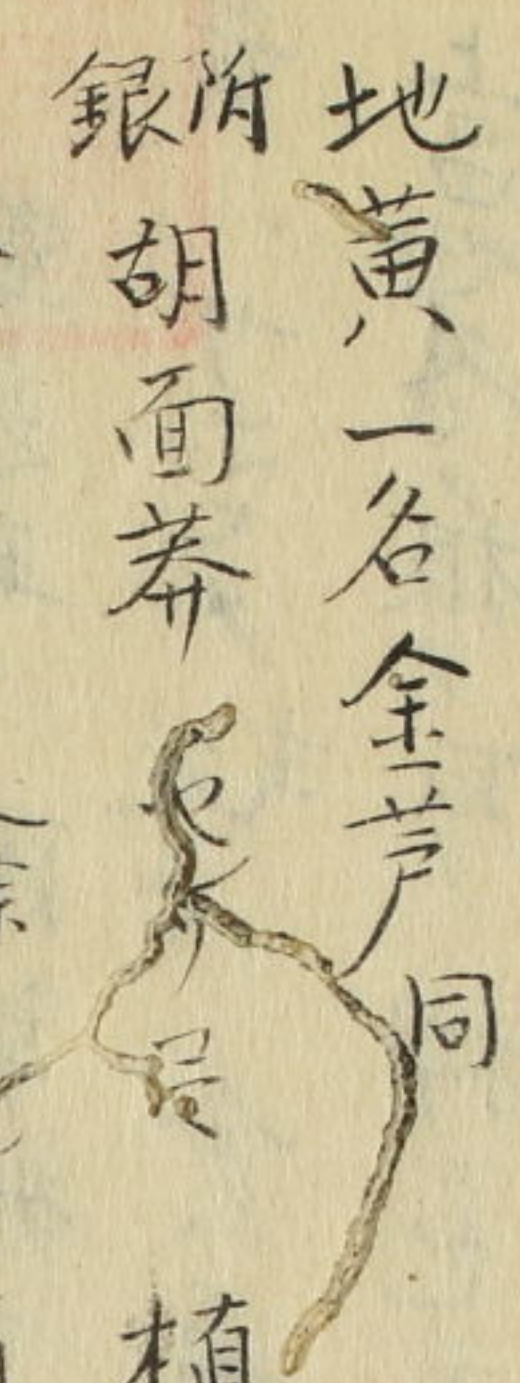 地黄一名金芦
同
附銀
胡面莽
植